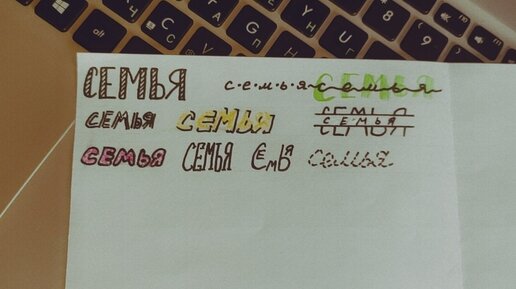 СЕМЬЯ с·е·м·ь·я семья СЕМЬЯ
СЕМЬЯ СЕМЬЯ СЕМЬЯ СЕМЬЯ
СЕМЬЯ СЕМЬЯ СЕМЬЯ семья